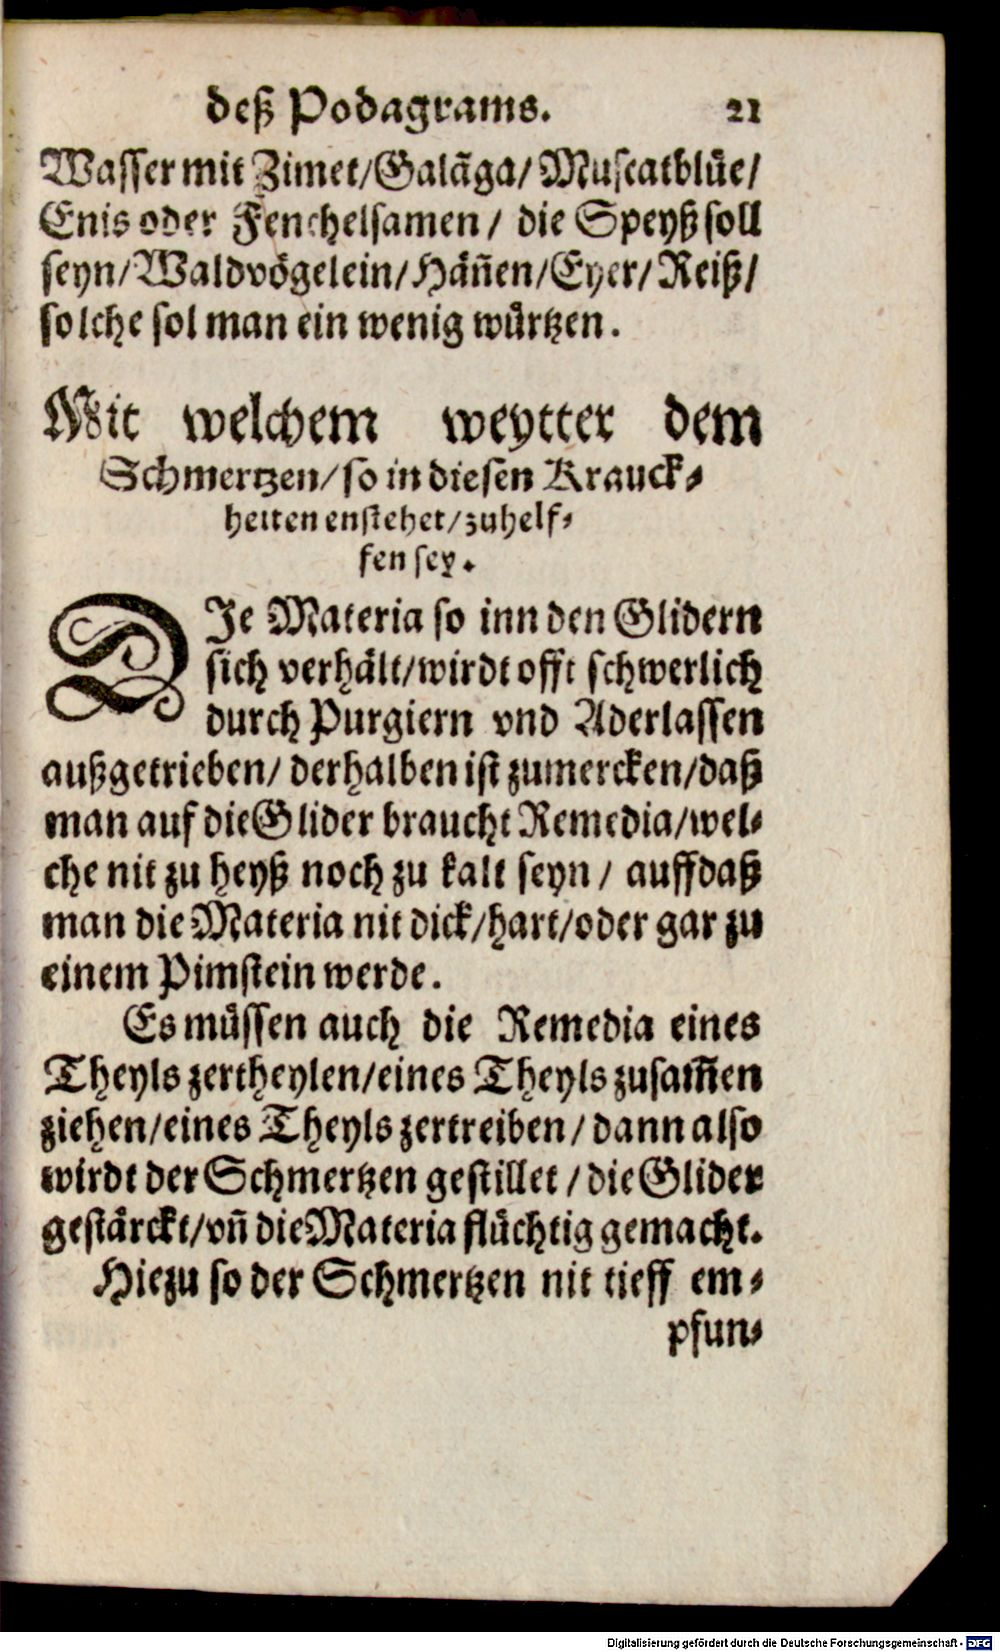 deß Podagrams. 21
Wasser mit Zimet/Galãga/ Muscatblüe/
Enis oder Fenchelsamen/ die Speyß soll
seyn/Waldvögelein/Häñen/Eyer/Reiß/
solche sol man ein wenig würtzen.
Mit welchem weytter dem
Schmertzen/so in diesen Kranck-
heiten enstehet/zuhelf-
fen sey.
DIe Materia so inn den Glidern
sich verhält/wirdt offt schwerlich
durch Purgiern vnd Aderlassen
außgetrieben/ derhalben ist zumercken/daß
man auf die Glider braucht Remedia/wel-
che nit zu heyß noch zu kalt seyn/ auffdaß
man die Materia nit dick/hart/oder gar zu
einem Pimstein werde.
Es müssen auch die Remedia eines
Theyls zertheylen/eines Theyls zusam̃en
ziehen/eines Theyls zertreiben/dann also
wirdt der Schmertzen gestillet/die Glider
gestärckt/vñ die Materia flüchtig gemacht.
Hiezu so der Schmertzen nit tieff em-
pfun-
Digitalisierung gefördert durch die Deutsche Forschungsgemeinschaft - DFG